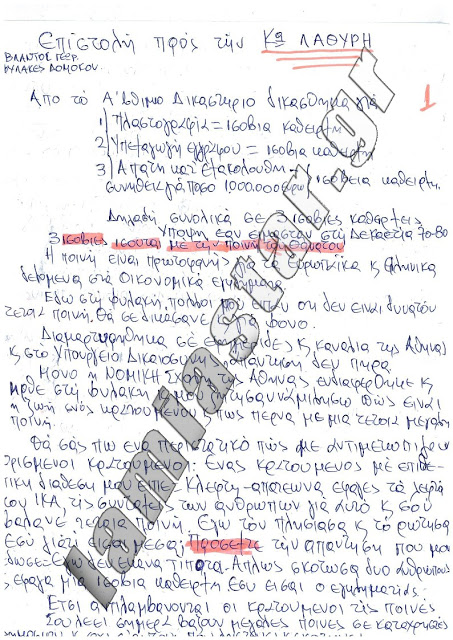 Επιστολή προς την Κα ΛΑΘΥΡΗ
ΒΛΑΝΤΟΣ ΓΕΩΡ.
ΦΥΛΑΚΕΣ ΔΟΜΟΚΟΥ
1
Απο τό Α'βθμιο Δικαστηριο δικασθηκα για
1) Πλαστογραφία = ισοβια καθειρξη
2) Υπεξαγωγή εγγραφου = ισοβια καθειρξη
3) Απατη κατ' εξακολουθηση
συνηθεια γιά ποσο 1000.000 ευρω ισοβεια καθειρξη.
Δηλαδή συνολικα σε 3 ισοβιες καθειρξεις
Υποψη εαν ειμασταν στη Δεκαετία 70-80
3 ισοβιες ισουται με την ποινη του θανατου
Η ποινή ειναι πρωτοφανής για τα ευρωπαικα κ Ελληνικα
δεδομενα στα οικονομικα εγκληματα
Εδω στη φυλακη πολλοι μου ειπαν οτι δεν ειναι δυνατον
τετοια ποινή, θα σε δικασανε για φονο.
Διαμαρτυρηθηκα σέ εφημεριδες κ καναλια της Αθηνας
κ στο Υπουργείο Δικαιοσυνης απαντηση δεν πηρα.
Μονο η ΝΟΜΙΚΗ Σχολη της Αθηνας ενδιαφερθηκε κ
ηρθε στη φυλακη κ μου ζητησαν να μιλησω πώς ειναι
η ζωη ενός κρατουμενου κ πως περνα με μια τετοια μεγαλη
ποινή.
Θα σάς πω ενα περιστατικό πώς με αντιμετωπιζουν
ορισμενοι κρατουμενοι. Ενας κρατουμενος μέ επιθε-
τικη διαθεση μου ειπε Κλεφτη-απατεωνα εφαγες τα λεφτα
του ΙΚΑ, τις συνταξεις των ανθρωπων γιά αυτό κ σου
βαλανε τετοια ποινή. Εγω τον πλησιασα κ τό ρωτησα
Εσυ γιατι εισαι μεσα; Προσεξτε την απαντηση που μου
έδωσε. Εγω δεν εκανα τιποτα. Απλως σκοτωσα δυο ανθρωπους
κ εφαγα μία ισοβια καθειρξη. Εσυ εισαι ο εγκληματιας.
Ετσι αντιλαμβανονται οι κρατουμενοι τις ποινές.
Σου λεει σημερα βαζουν μεγαλες ποινες σε καταχρησεις
lamiastar.gr